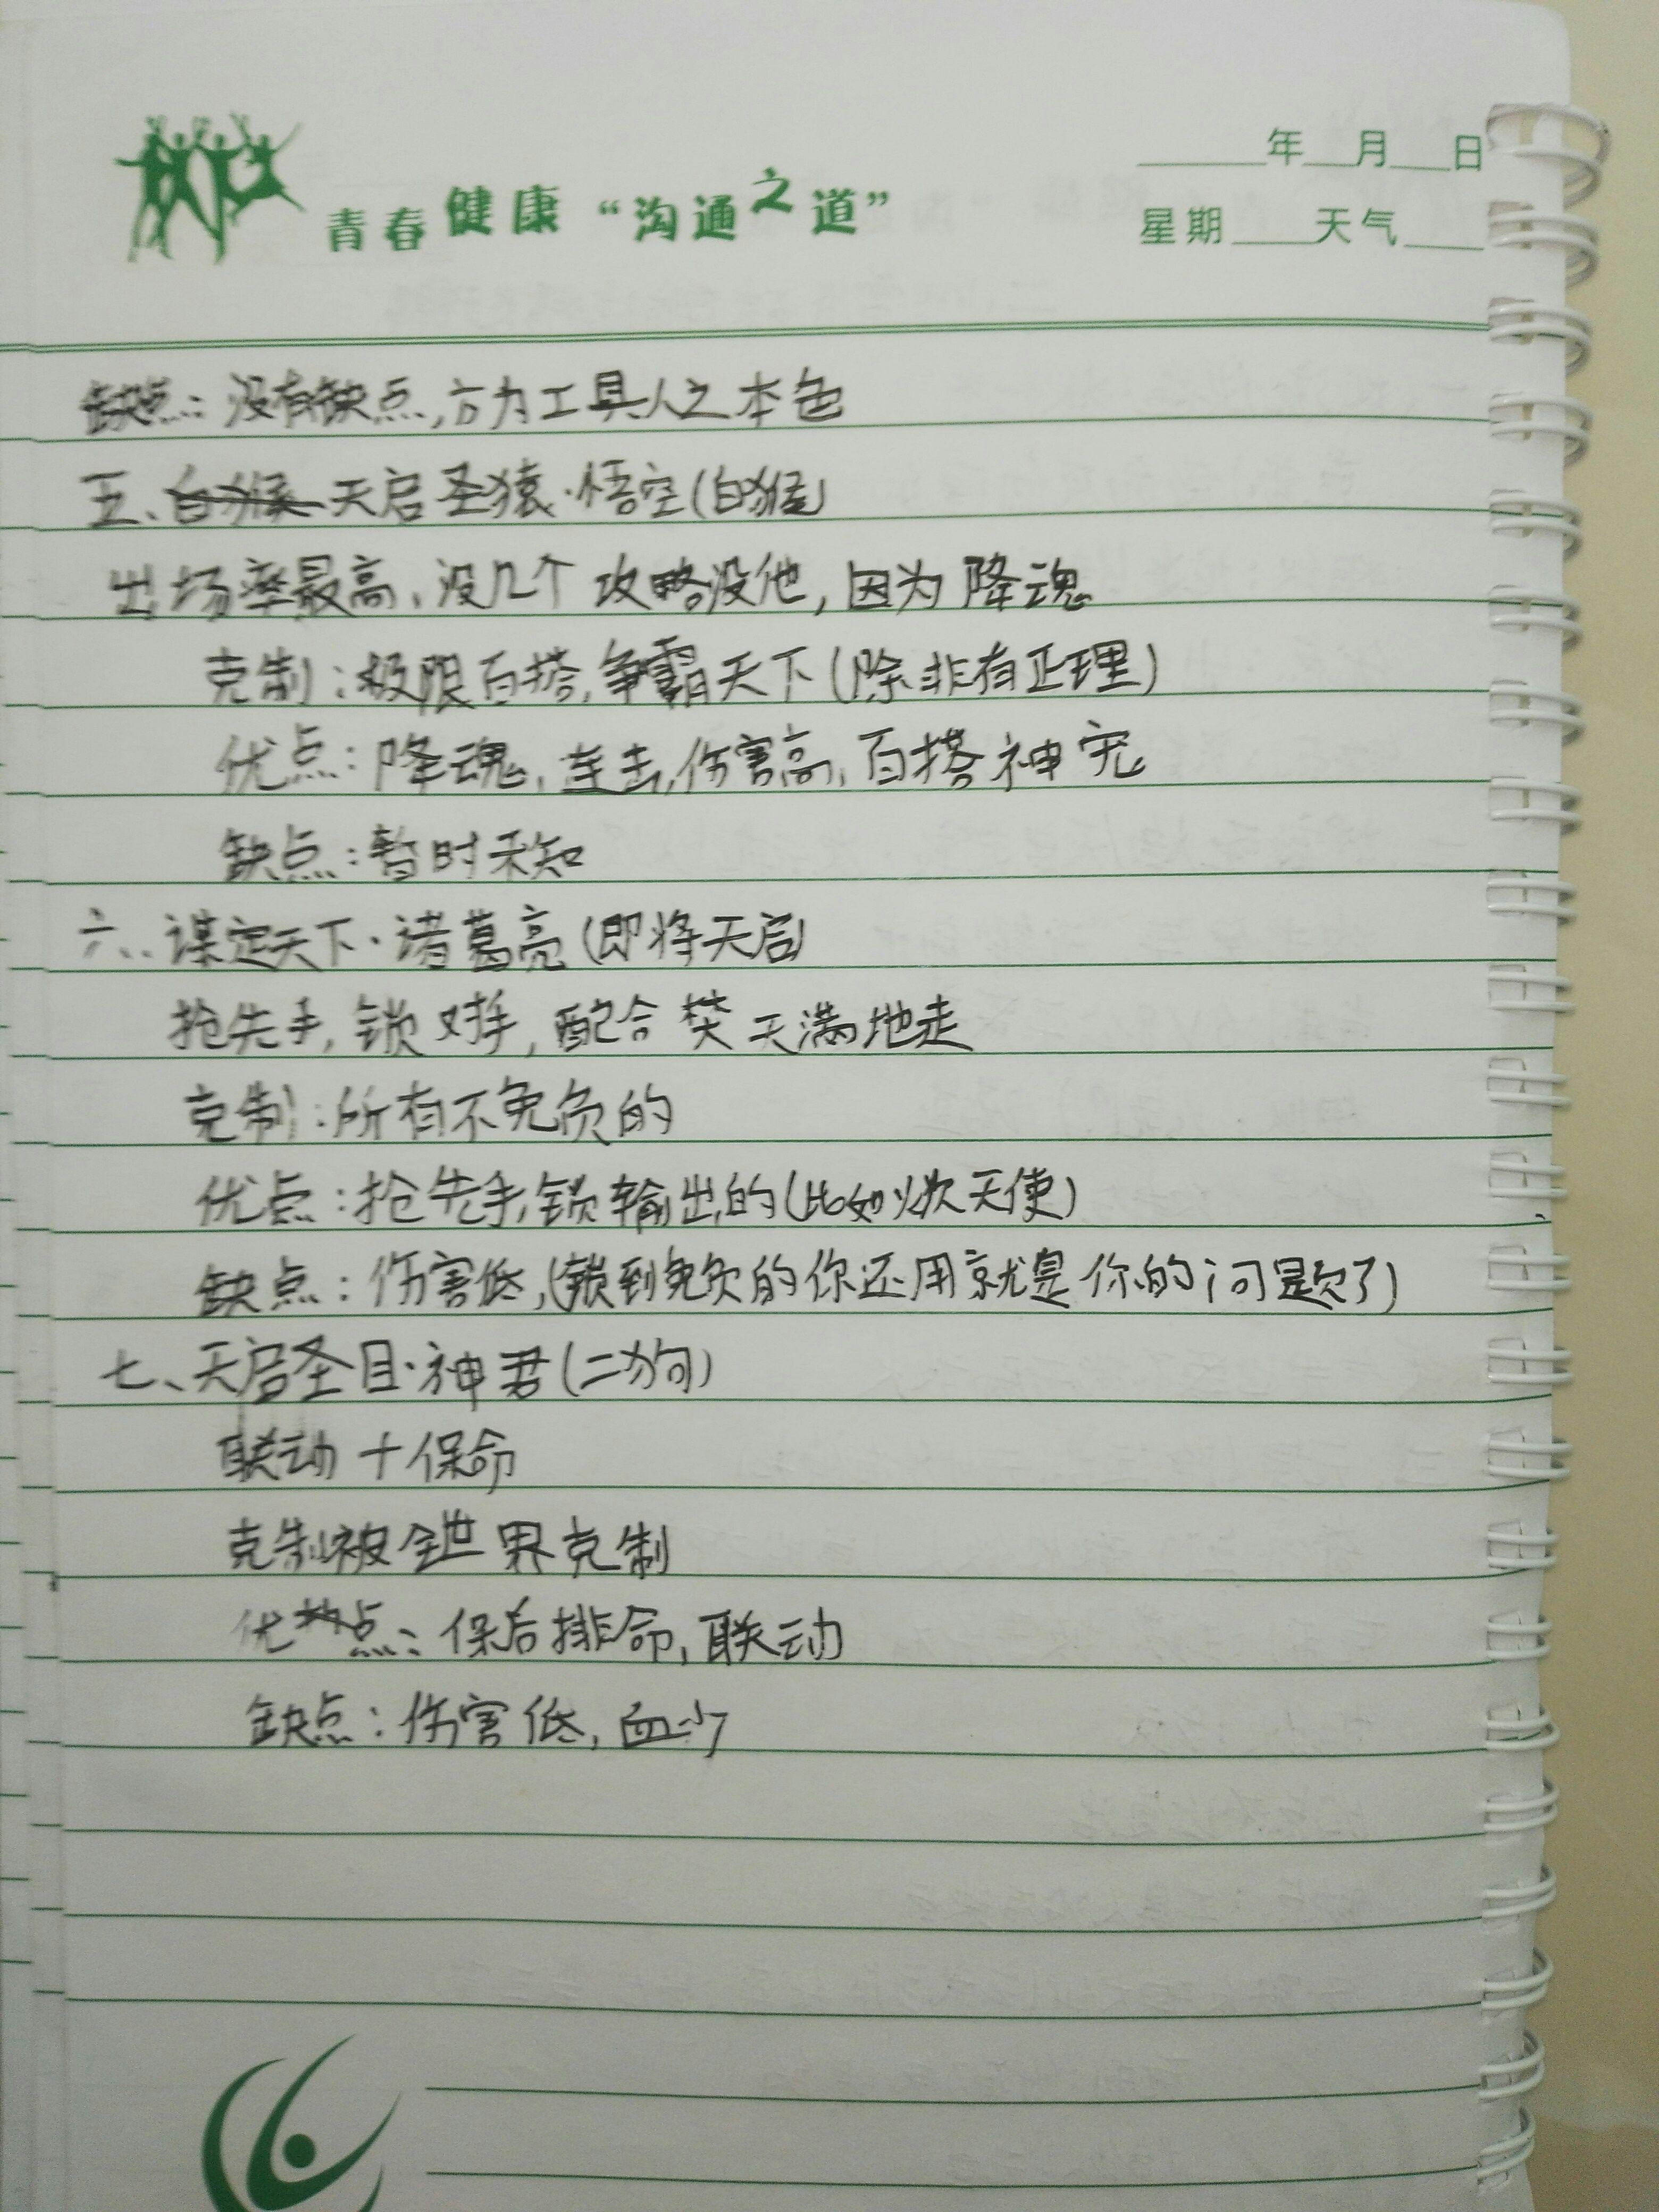 青春健康“沟通之道”
____年__月__日
星期___天气___
缺点：没有缺点，方为工具人之本色
五、白猴 天启圣猿·悟空（白猴）
出场率最高，没几个攻略没他，因为降魂
克制：极限百搭，争霸天下（除非有正理）
优点：降魂，连击，伤害高，百搭神宠
缺点：暂时未知
六、谋定天下·诸葛亮（即将天启）
抢先手，锁对手，配合焚天满地走
克制：所有不免负的
优点：抢先手，锁输出的（比如炽天使）
缺点：伤害低，（锁到免负的你还用就是你的问题了）
七、天启圣目·神君（二狗）
联动+保命
克制被全世界克制
优点：保后排命，联动
缺点：伤害低，血少